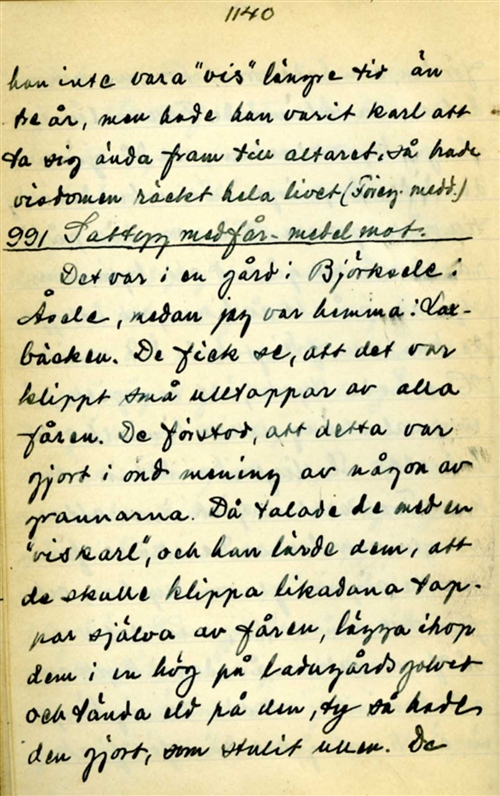 1140
han inte vara "vis" längre tid än
tre år, men hade han varit karl att
ta sig ända fram till altaret, så hade
visdomen räckt hela livet (Föreg. medd.)
991 Satt upp med får - medel mot.
Det var i en gård i Björksele i
Åsele, medan jag var hemma i Lax-
bäcken. De fick se, att det var
klippt små ulltappar av alla
fåren. De förstod, att detta var
gjort i ond mening av någon av
grannarna. Då talade de med en
"vis karl", och han lärde dem, att
de skulle klippa likadana tap-
par själva av fåren, lägga ihop
dem i en hög på ladugårdsgolvet
och tända eld på den, ty så hade
den gjort, som stulit ullen. De